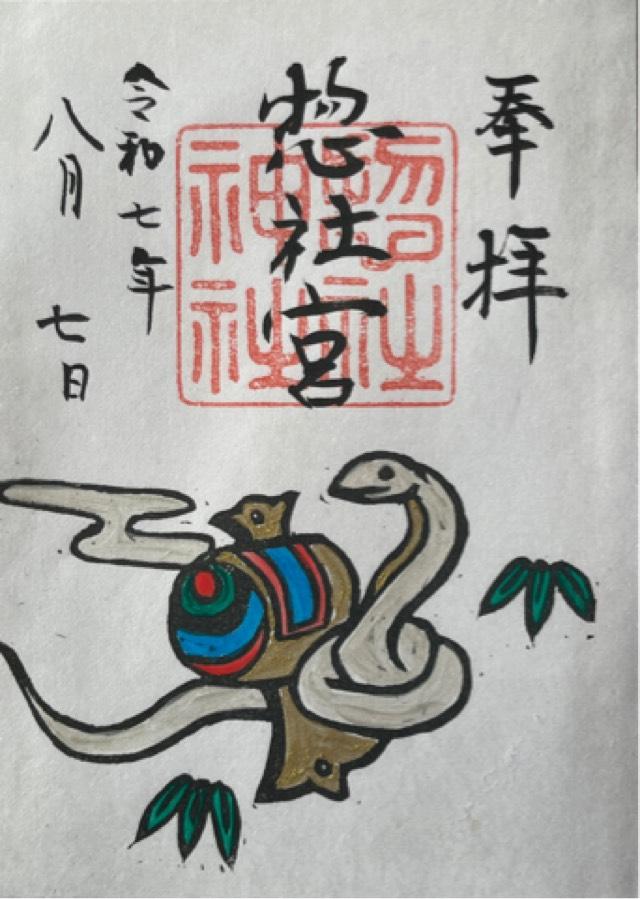 奉拝
惣社宮
社
神社
令和七年
八月七日